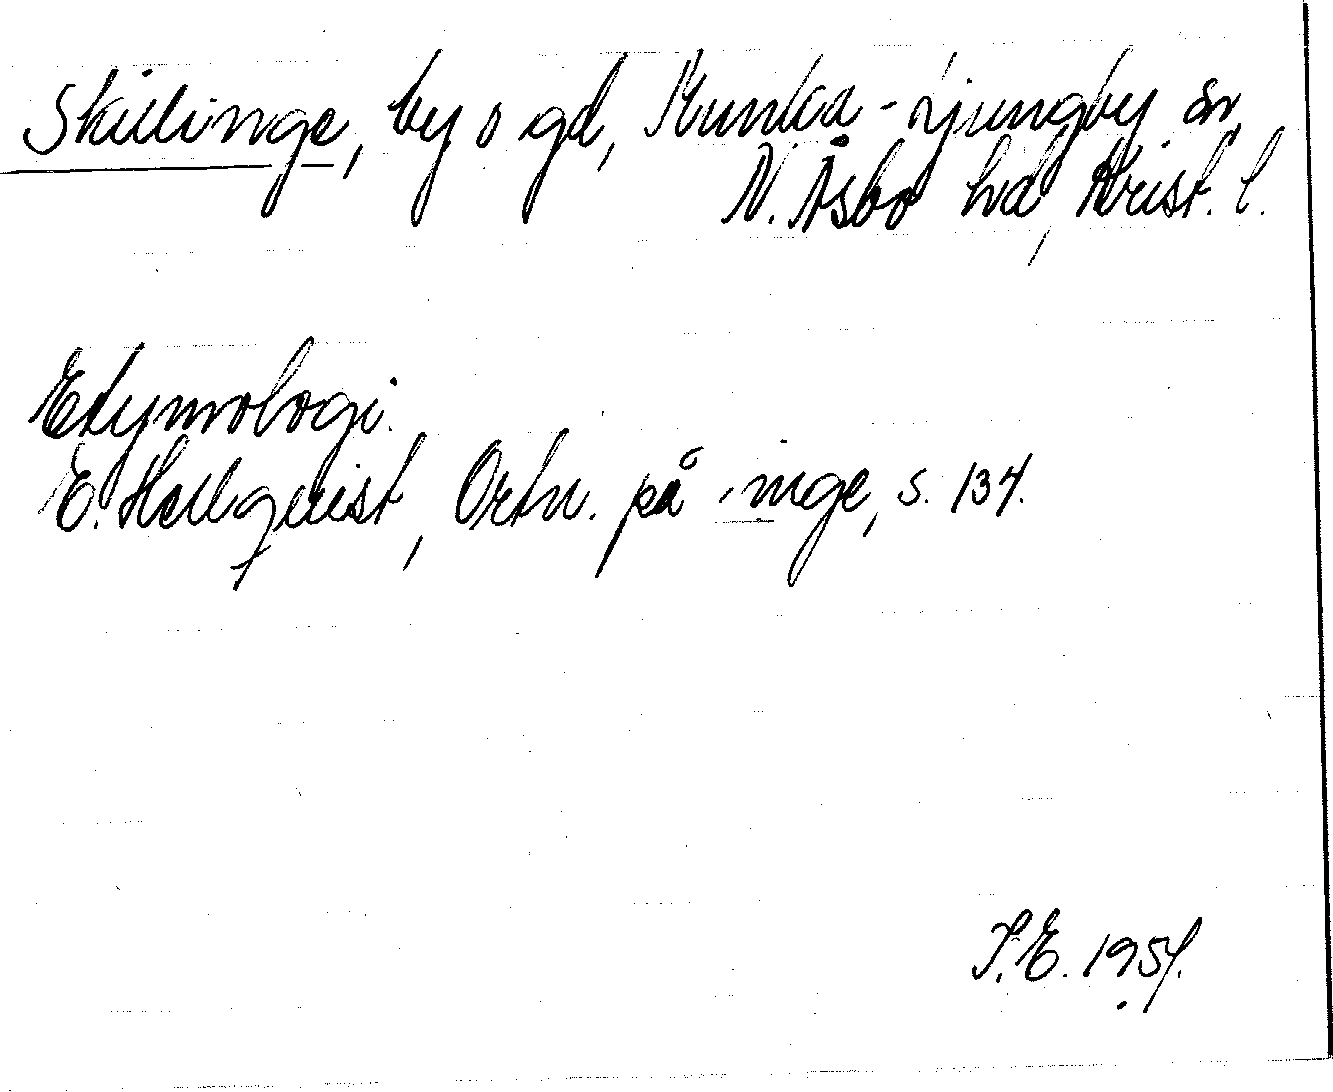 Skillinge, by o gd, Munka-Ljungby sn,
N. Åsbo hd, Krist. l.
Etymologi.
E. Hellquist, Ortn. på -inge, s. 134.
1957.